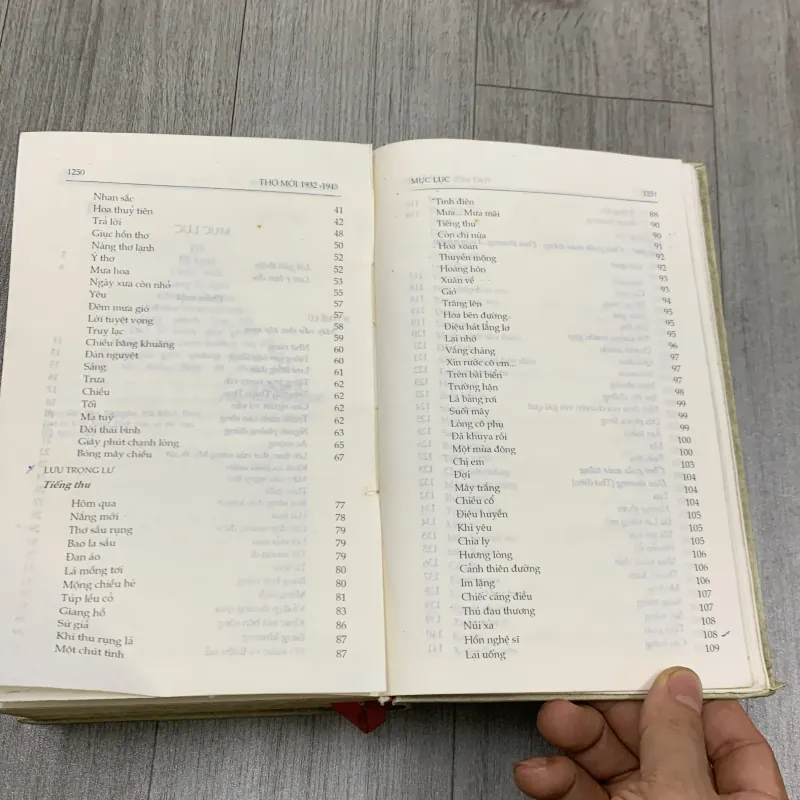 1250 THƠ MỚI 1932 -1945
Nhan sắc 41
Hoa thuỷ tiên 42
Trả lời 48
Giục hồn thơ 50
Nàng thơ lạnh 52
Ý thơ 52
Mưa hoa 53
Ngày xưa còn nhỏ 55
Yêu 57
Đêm mưa gió 57
Lời tuyệt vọng 58
Truỵ lạc 59
Chiều bâng khuâng 60
Đàn nguyệt 60
Sáng 61
Trưa 62
Chiều 62
Tối 62
Ma tuý 62
Đời thái bình 63
Giây phút chạnh lòng 65
Bóng mây chiều 67
LƯU TRỌNG LƯ
Tiếng thu
Hôm qua 77
Nắng mới 78
Thơ sầu rụng 79
Bao la sầu 79
Đan áo 79
Lá mồng tơi 80
Mộng chiều hè 80
Túp lều cỏ 81
Giang hồ 83
Sứ giả 86
Khi thu rụng lá 87
Một chút tình 87
MỤC LỤC 1251
Tình điên 88
Mưa... Mưa mãi 90
Tiếng thu 90
Còn chi nữa 91
Hoa xoan 92
Thuyền mộng 92
Hoàng hôn 93
Xuân về 93
Gió 94
Trăng lên 95
Hoa bên đường 95
Điệu hát lẳng lơ 95
Lại nhớ 96
Vắng chàng 97
Xin rước cô em... 97
Trên bãi biển 97
Trường hận 98
Lá bàng rơi 99
Suối mây 99
Lòng cô phụ 99
Đã khuya rồi 100
Một mùa đông 100
Chị em 103
Đợi 104
Mây trắng 104
Chiều cổ 104
Điệu huyền 105
Khi yêu 105
Chia ly 105
Hương lòng 106
Cảnh thiên đường 106
Im lặng 106
Chiếc cáng điều 107
Thú đau thương 107
Núi xa 108
Hồn nghệ sĩ 108
Lại uống 109